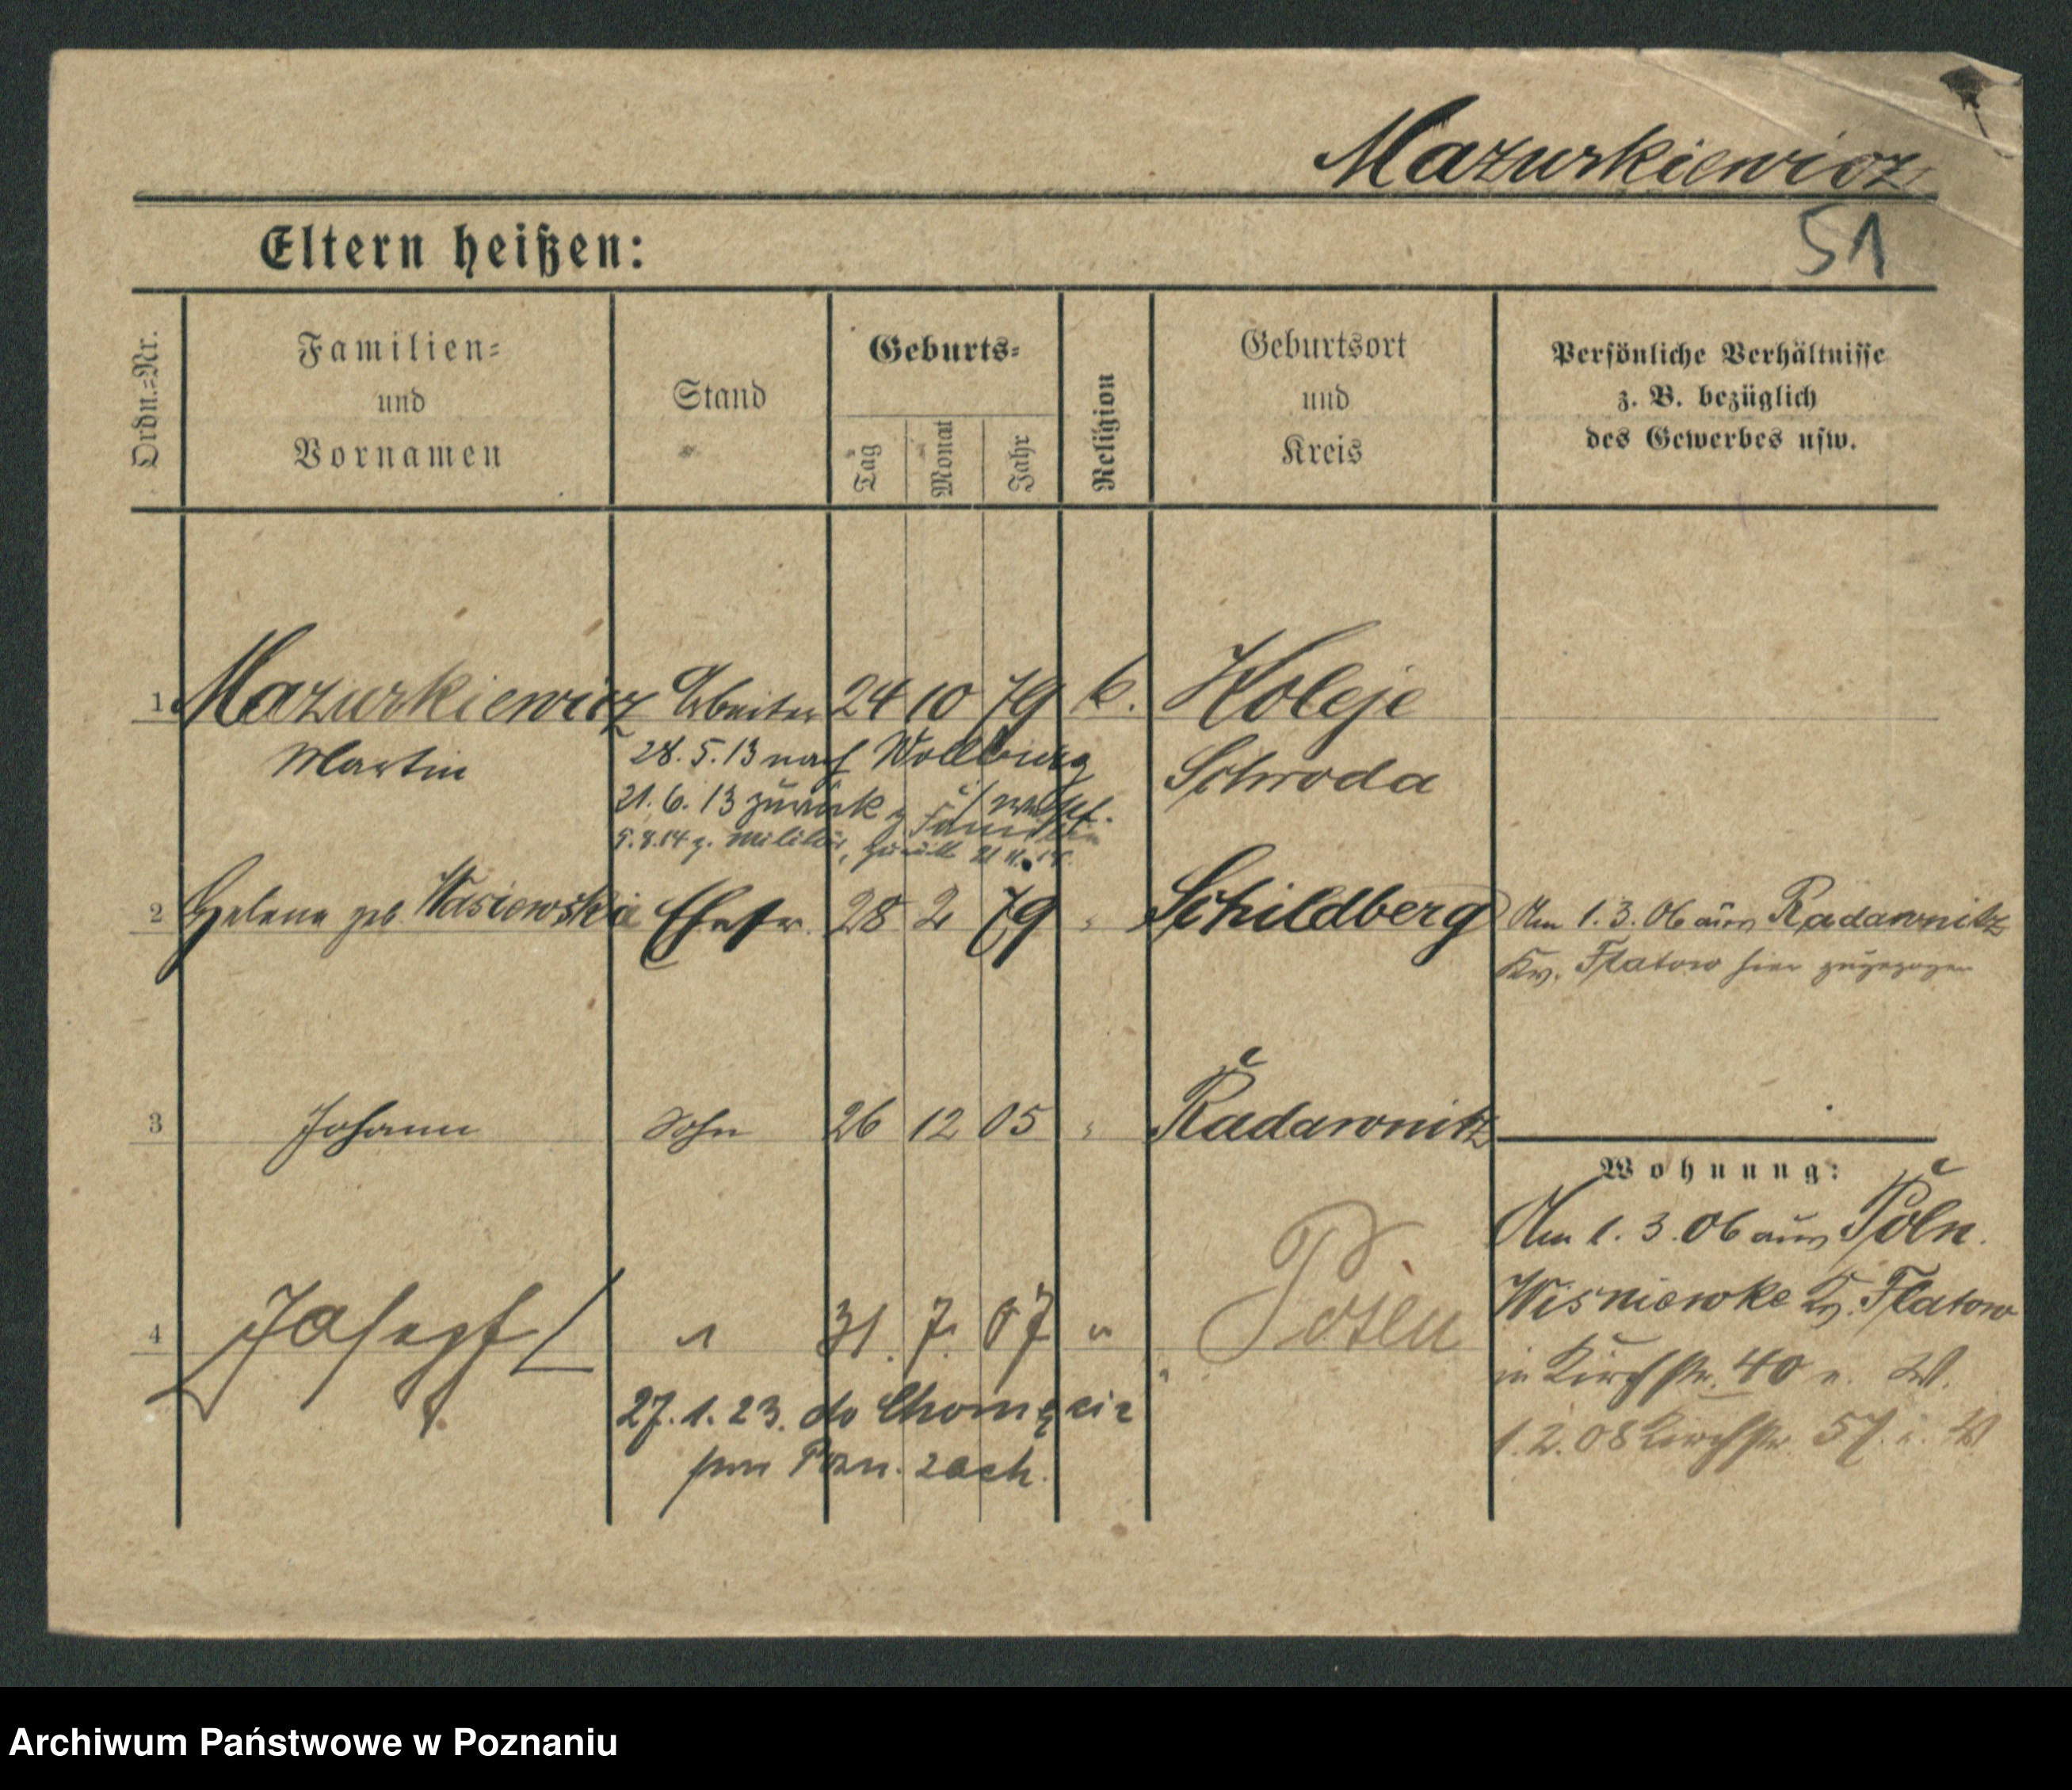 Mazurkiewicz
51
Eltern heißen:
Ordn.-Nr.
Familien-
und
Vornamen
Stand
Geburts-
Tag
Monat
Jahr
Religion
Geburtsort
und
Kreis
Persönliche Verhältnisse
z. B. bezüglich
des Gewerbes usw.
1 Mazurkiewicz Arbeiter 24 10 79 k. Koleje
Martin
Schroda
28. 5. 13 nach Wollburg
21. 6. 13 zurück
5. 8. 14 z. Militär, zurück
2 Helene geb. Wasiewska Ehefr. 28 2 79 " Schildberg
Am 1. 3. 06 aus Radawnitz
Kr. Flatow hier zugezogen
3 Johann Sohn 26 12 05 " Radawnitz
Wohnung:
Am 1. 3. 06 aus Poln.
Wisniewke Kr. Flatow
in Kirchstr. 40 e. W.
1. 2. 08 Kirchstr. 57. i. W
4 Josepf " 31. 7. 07 " Posen
27. 1. 23. do Chomęcic
pow Pozn. zach.
Archiwum Państwowe w Poznaniu